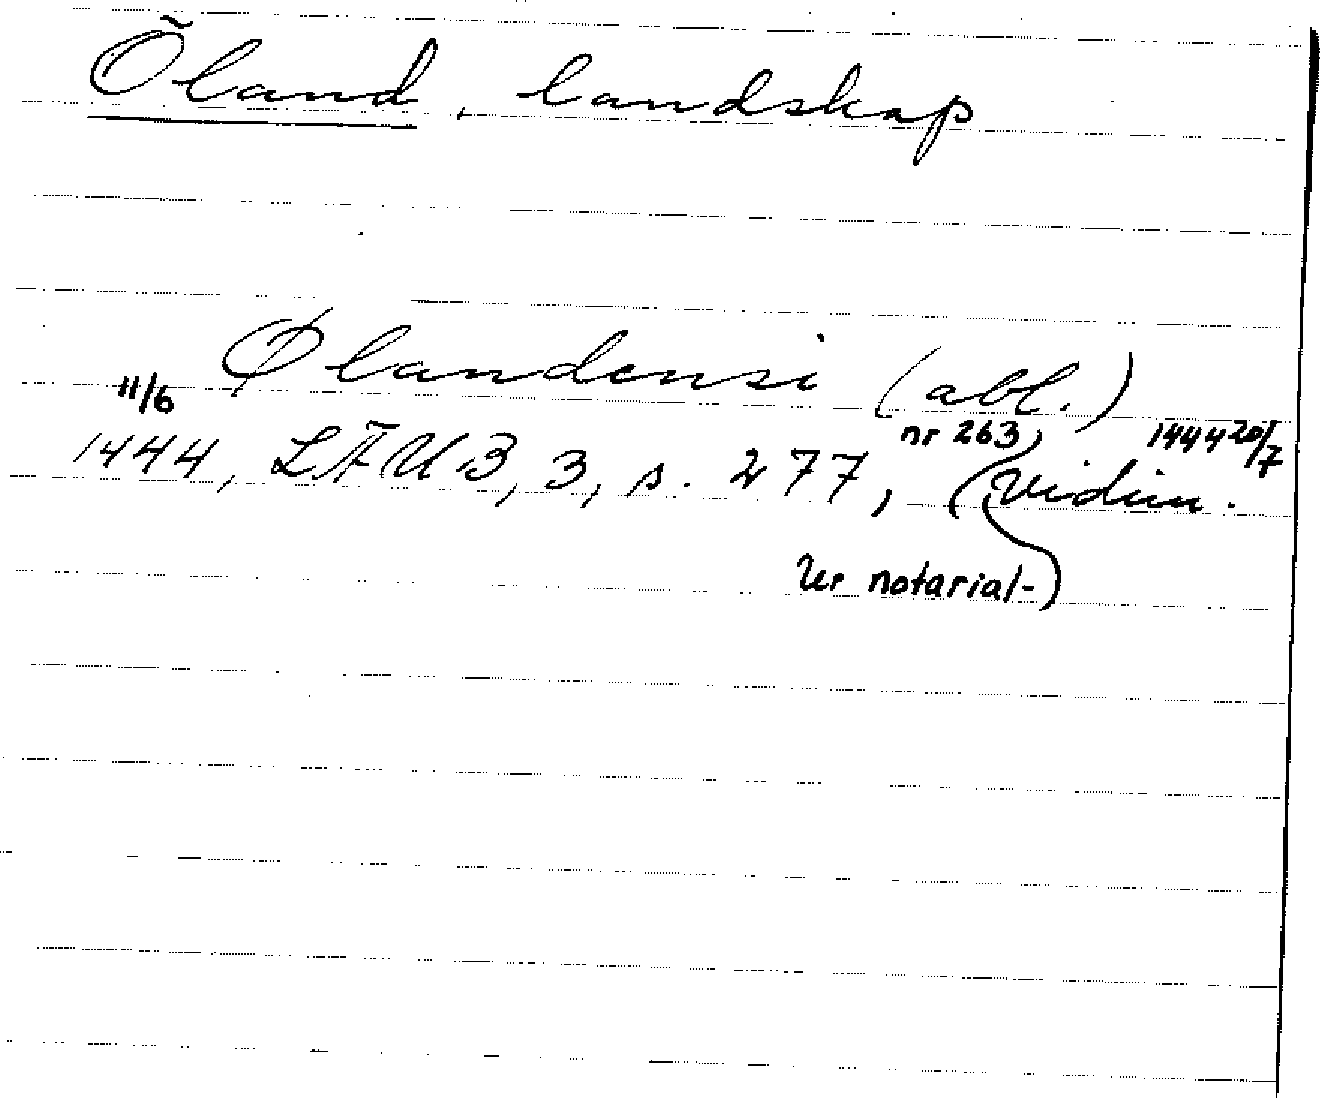 Öland, landskap
Ølandensi (abl.)
11/6 nr 263, 1444 20/7
1444, LFUB, 3, s. 277, (vidim.
ur notarial-)